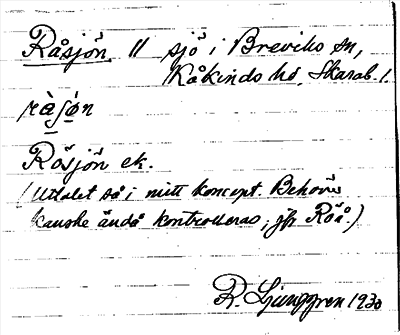 Råsjön. ll sjö i Breviks sn,
Kåkinds hd, Skarab. l.
ràsjön
Rösjön ek.
(Uttalet så i mitt koncept. Behöver
kanske ändå kontrolleras; jfr Röå.)
R. Ljunggren 1930